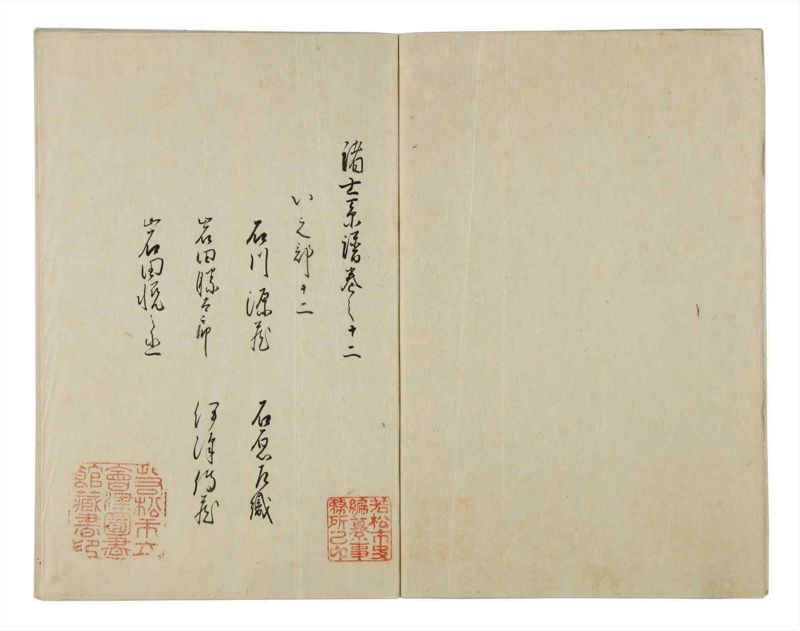 諸士系譜巻之十二
い之部十二
石川源蔵
石原右織
岩田勝太郎
伊澤傳蔵
岩田悦之丞
若松市史
編纂事
務所之印
若松市立
會津圖書
館藏書印